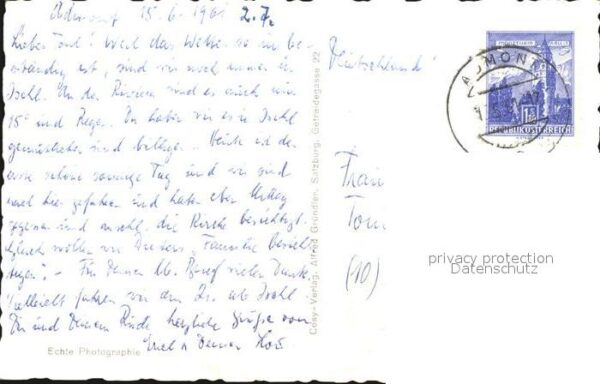 Admont 15.6.1961
Liebe Toni! Weil das Wetter so un be-
ständig ist, sind wir noch immer in
Ischl. An der Riviera sind es auch nur
15° und Regen. Da haben wir es in Ischl
gemütlicher und billiger. Heute ist der
erste schöne sonnige Tag und wir sind
nach hier gefahren und haben eben Mittag
gegessen und anschl. die Kirche besichtigt.
Gleich wollen wir
- Für Deinen lb. Brief vielen Dank.
Vielleicht fahren wir am ab Ischl.
Dir und Deinem Kinde herzliche Grüße von
Deutschland!
Frau
Toni
(10)
Echte Photographie
Cosy-Verlag, Alfred Gründler, Salzburg, Getreidegasse 22
ADMONT
REPUBLIK ÖSTERREICH
privacy protection
Datenschutz